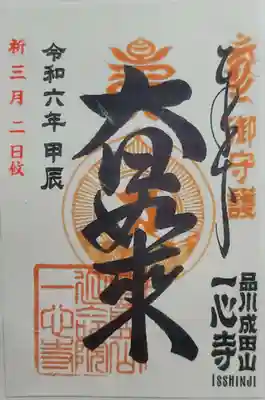 奉拝
御守護
大日如来
品川成田山
一心寺
ISSHINJI
令和六年 甲辰
新三月二日攼
一心寺